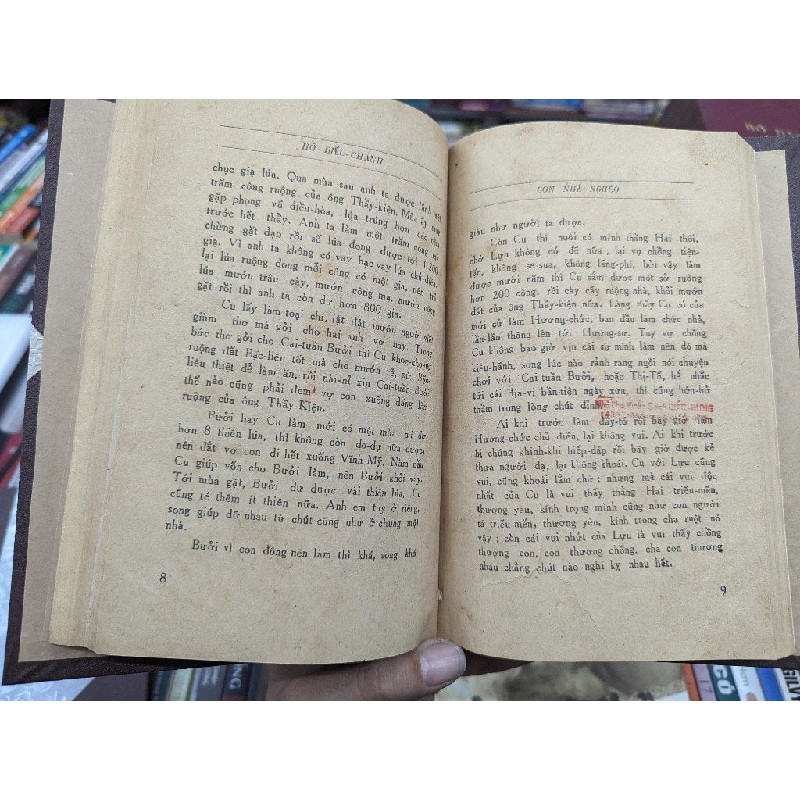 HỒ-BIỂU-CHÁNH
chục giạ lúa. Qua mùa sau anh ta được lãnh một
trăm công ruộng của ông Thầy-kiện.
gặp phong vũ điều-hòa, lúa trúng hơn các
trước hết thảy. Anh ta làm một trăm công
chừng gặt đạp rồi số lúa đong được tới 1.200
giạ. Vì anh ta không có vay bạc vay lúa chi
lại lúa ruộng đong mỗi công có một giạ, nên trả
lúa mướn trâu cày, mướn công mạ, mướn công
gặt rồi thì anh ta còn dư hơn 800 giạ.
Cu lấy làm toại chí, lật đật
thơ mà gởi cho hai anh vợ hay. Trong
bức thơ gởi cho Cai-tuần Bưởi thì Cu khen-chong
ruộng đất Bạc-liêu tốt mà cho mướn rẻ,
liều thiệt dễ làm ăn, rồi nài-nỉ xin Cai-tuần
thế nào cũng phải đem vợ con xuống đặng làm
ruộng của ông Thầy Kiện.
Bưởi hay Cu làm mới có một mùa mà dư
hơn 8 thiên lúa, thì không còn do-dự nữa được
nên dắt vợ con đi hết xuống Vĩnh Mỹ. Năm đầu
Cu giúp vốn cho Bưởi làm, nên Bưởi khỏi vay.
Tới mùa gặt, Bưởi dư được vài thiên lúa, Cu
cũng có thêm ít thiên nữa. Anh em tuy ở riêng,
song giúp đỡ nhau từ chút cũng như ở chung một
nhà.
Bưởi vì con đông nên làm thì khá, song khó
8
CON NHÀ NGHÈO
giàu như người ta được.
Còn Cu thì nuôi có mình thằng Hai thôi,
chớ Lựu không có đẻ nữa; lại vợ chồng tiện-
tặn, không se-sua, không lãng-phí, bởi vậy làm
được mười năm thì Cu sắm được một sở ruộng
hơn 200 công, rồi cày cấy ruộng nhà, khỏi mướn
đất của ông Thầy-kiện nữa. Làng thấy Cu có của
mới cử làm Hương-chức, ban đầu làm chức nhỏ,
lần-lần thăng lên tới Hương-sư. Tuy vợ chồng
Cu không bao giờ vịn cái sự mình làm nên đó mà
kiêu-hãnh, song lúc nào rảnh rang ngồi nói chuyện
chơi với Cai tuần Bưởi, hoặc Thị-Tố, hễ nhắc
tới cái địa-vị bần-tiện ngày xưa, thì cũng hớn-hở
thầm trong lòng chút đỉnh
Ai khi trước làm đầy-tớ rồi bây giờ lên
Hương-chức chủ điền, lại không vui. Ai khi trước
bị chúng khinh-khi hiếp-đáp rồi bây giờ được kẻ
thưa người dạ, lại không khoái. Cu với Lựu cũng
vui, cũng khoái lắm chớ; nhưng mà cái vui độc
nhất của Cu là vui thấy thằng Hai triều-mến,
thương yêu, kính trọng mình cũng như con người
ta triều-mến, thương yêu, kính trọng cha ruột nó
vậy; còn cái vui nhất của Lựu là vui thấy chồng
thượng con, con thương chồng, cha con thương
nhau chẳng chút nào nghi kỵ nhau hết.
9